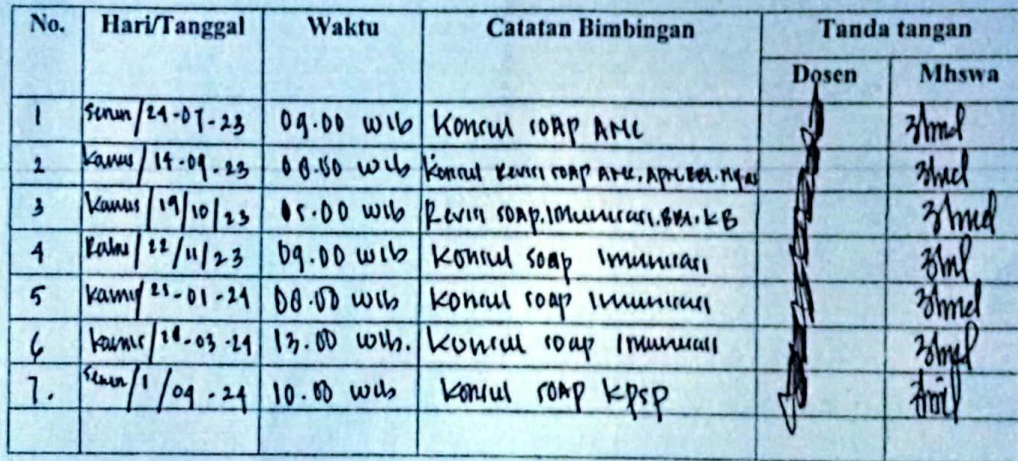 No. Hari/Tanggal Waktu Catatan Bimbingan Tanda tangan
Dosen Mhswa
1 Senin/24-07-23 09.00 WIB Konsul SOAP ANC
2 Kamis/14-09-23 08.00 WIB Konsul Revisi SOAP ANC, APN, BBL,
3 Kamis/19/10/23 Revisi SOAP.Imunisasi.BBL.KB
4 Rabu/22/11/23 09.00 WIB Konsul SOAP Imunisasi
5 Kamis/25-01-24 08.00 WIB Konsul SOAP Imunisasi
6 Kamis/28-03-24 13.00 WIB. Konsul SOAP Imunisasi
7. Senin/1/04-24 10.00 WIB Konsul SOAP KPSP